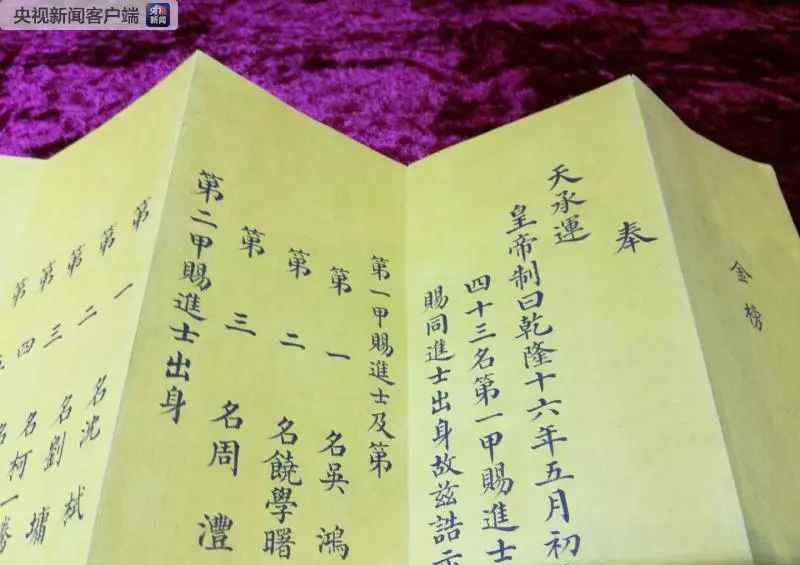 央视新闻客户端
央视新闻
金榜
奉
天承運
皇帝制曰乾隆十六年五月初
四十三名第一甲賜進士
賜同進士出身故茲誥示
第一甲賜進士及第
第一名吳鴻
第二名饒學曙
第三名周灃
第二甲賜進士出身
第一名沈栻
第二名劉墉
第三名柯一騰
第四名
第